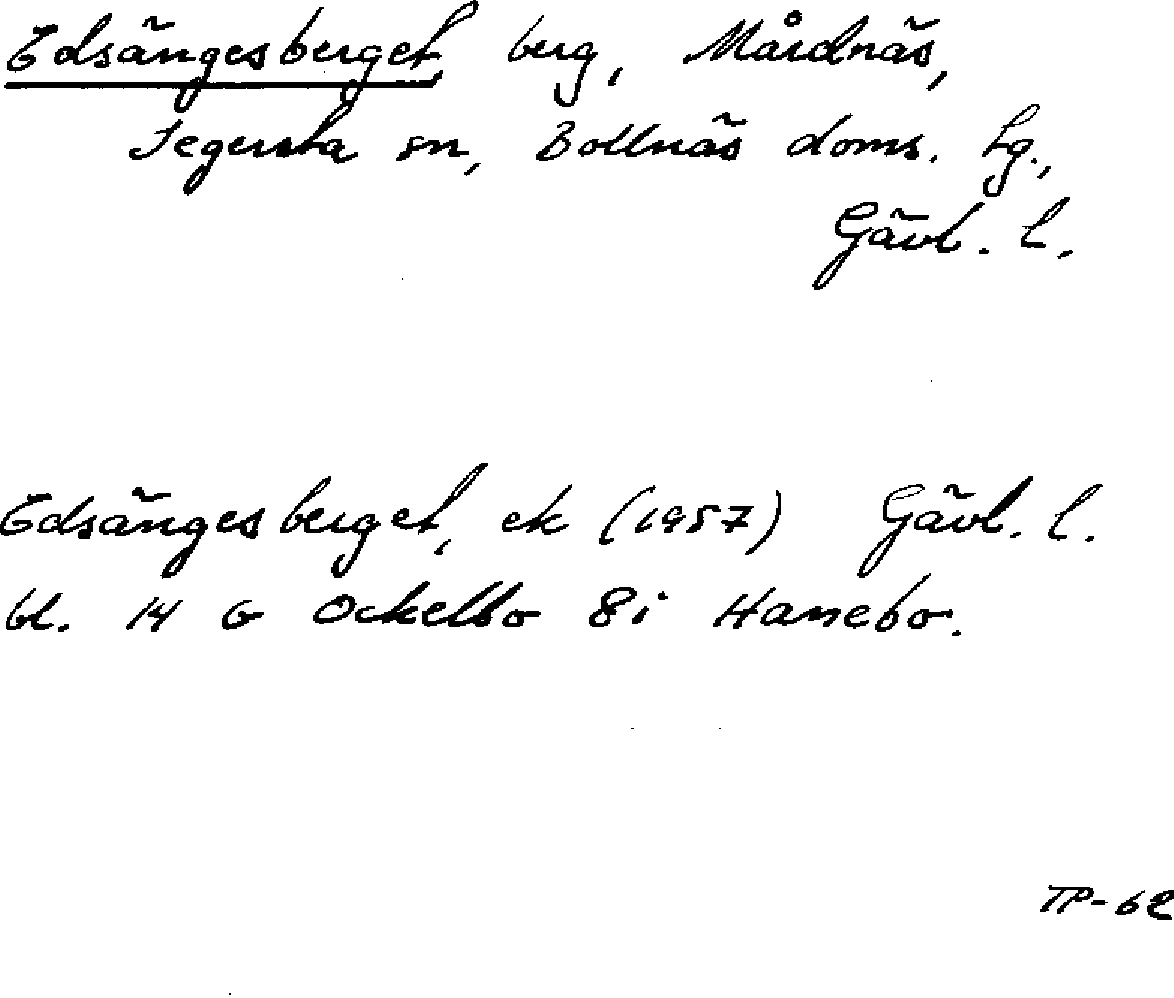 Edsängesberget, berg, Mårdnäs,
Segersta sn, Bollnäs doms. tg.,
Gävl. l.
Edsängesberget, ek (1957) Gävl. l.
bl. 14 G Ockelbo 8i Hanebo.
TP-62